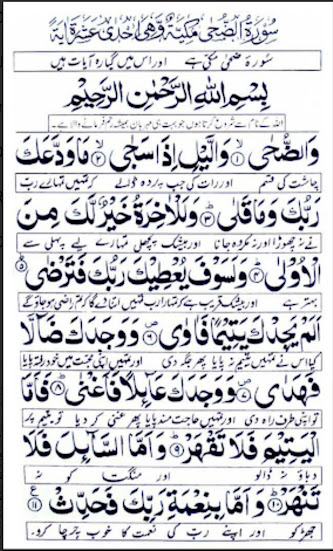 سُوْرَةُ الضُّحٰى مَكِّيَّةٌ وَّهِيَ اِحْدٰى عَشْرَةَ اٰيَةً
سُورۃ ضحٰی مکی ہے اور اس میں گیارہ آیات ہیں
بِسْمِ اللّٰهِ الرَّحْمٰنِ الرَّحِيْمِ
اللہ کے نام سے شروع کرتا ہوں جو بہت ہی مہربان ہمیشہ رحم فرمانے والا ہے۔
وَالضُّحٰى ۱ وَالَّيْلِ اِذَا سَجٰى ۲ مَا وَدَّعَكَ
چاشت کی قسم اور رات کی جب پردہ ڈالے کہ تمہیں تمہارے رب
رَبُّكَ وَمَا قَلٰى ۳ وَلَلْاٰخِرَةُ خَيْرٌ لَّكَ مِنَ
نے نہ چھوڑا اور نہ مکروہ جانا اور بیشک پچھلی تمہارے لیے پہلی سے
الْاُوْلٰى ۴ وَلَسَوْفَ يُعْطِيْكَ رَبُّكَ فَتَرْضٰى ۵
بہتر ہے اور بیشک قریب ہے کہ تمہارا رب تمہیں اتنا دے گا کہ تم راضی ہو جاؤ گے
اَلَمْ يَجِدْكَ يَتِيْمًا فَاٰوٰى ۶ وَوَجَدَكَ ضَآلًّا
کیا اس نے تمہیں یتیم نہ پایا پھر جگہ دی اور تمہیں اپنی محبت میں خود رفتہ پایا
فَهَدٰى ۷ وَوَجَدَكَ عَآئِلًا فَاَغْنٰى ۸ فَاَمَّا
تو اپنی طرف راہ دی اور تمہیں حاجت مند پایا پھر غنی کر دیا تو یتیم پر
الْيَتِيْمَ فَلَا تَقْهَرْ ۹ وَاَمَّا السَّآئِلَ فَلَا
دباؤ نہ ڈالو اور منگتا کو نہ
تَنْهَرْ ۱۰ وَاَمَّا بِنِعْمَةِ رَبِّكَ فَحَدِّثْ ۱۱ ع
جھڑکو اور اپنے رب کی نعمت کا خوب چرچا کرو۔